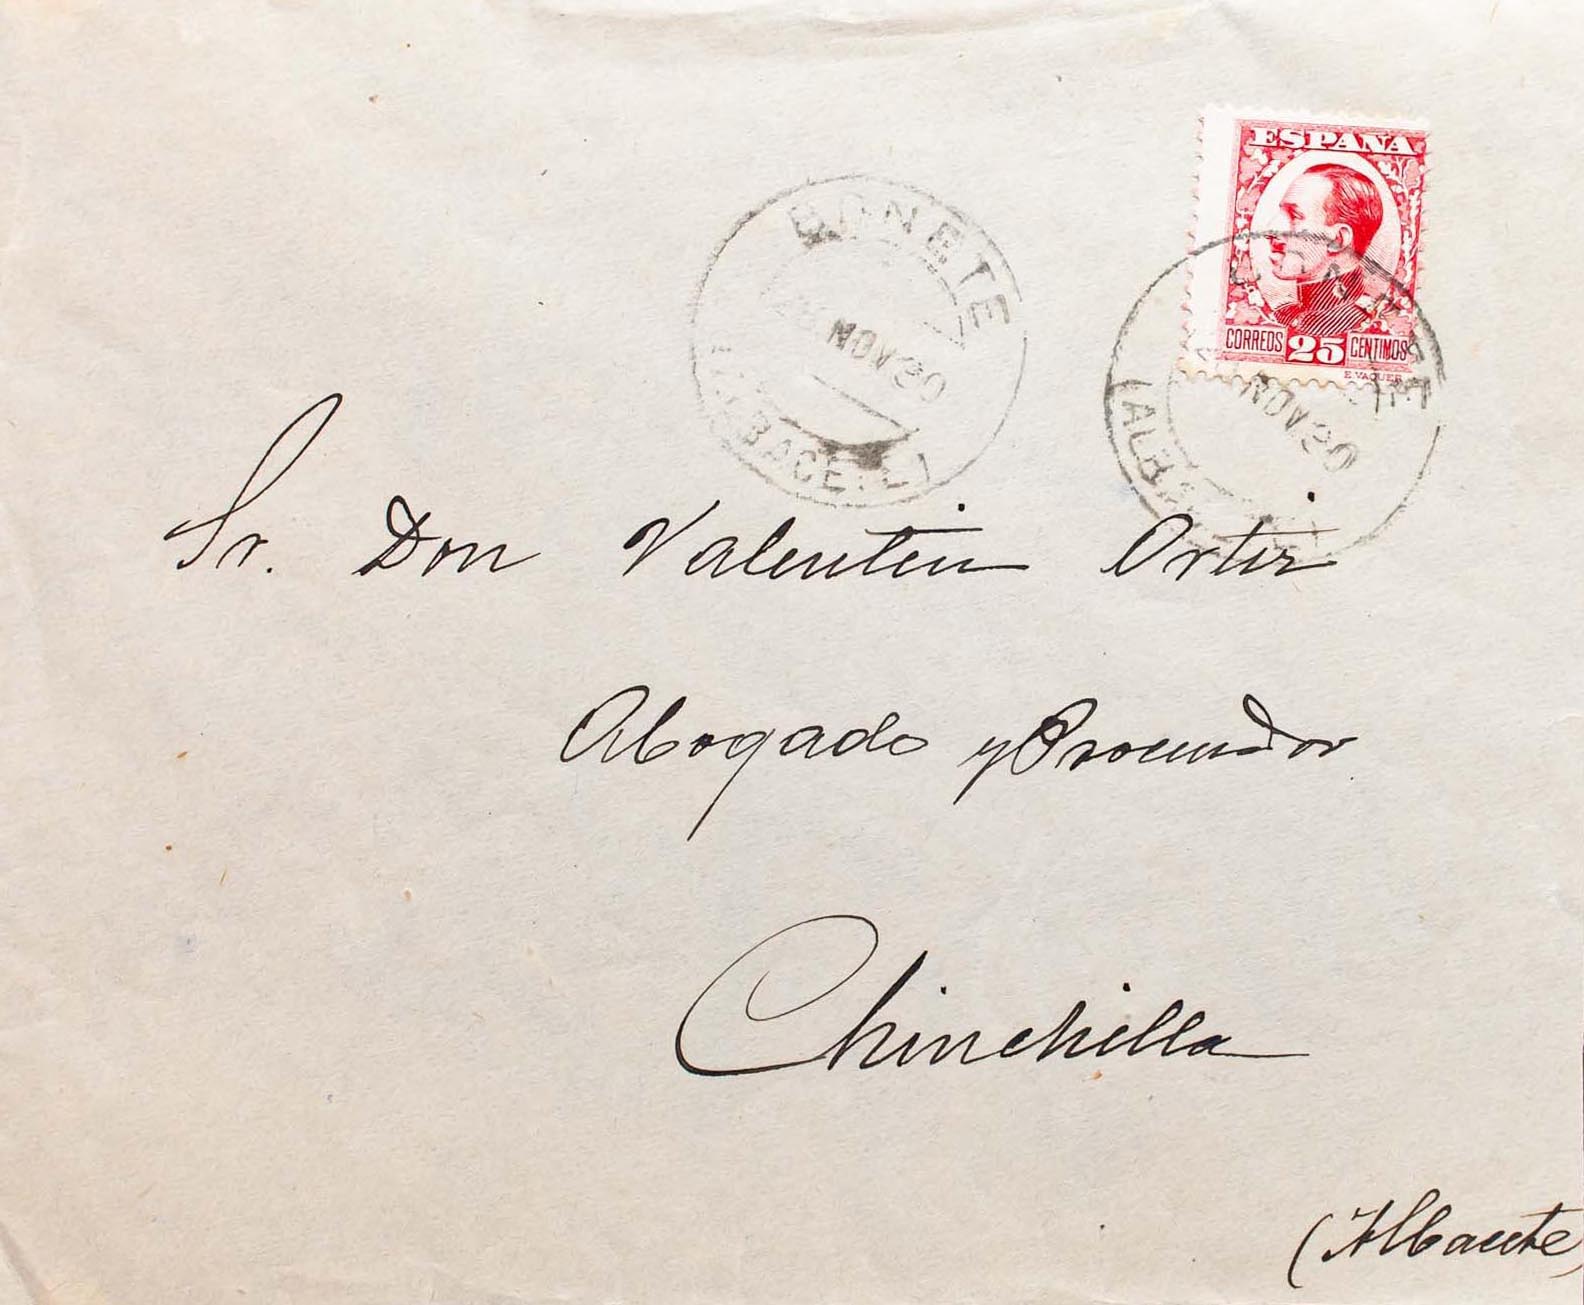 ESPAÑA
CORREOS 25 CENTIMOS
E. VAQUER
BONETE
NOV 20
(ALBACETE)
NOV 20
Sr. Don Valentin Ortiz
Abogado y Procurador
Chinchilla
(Albacete)